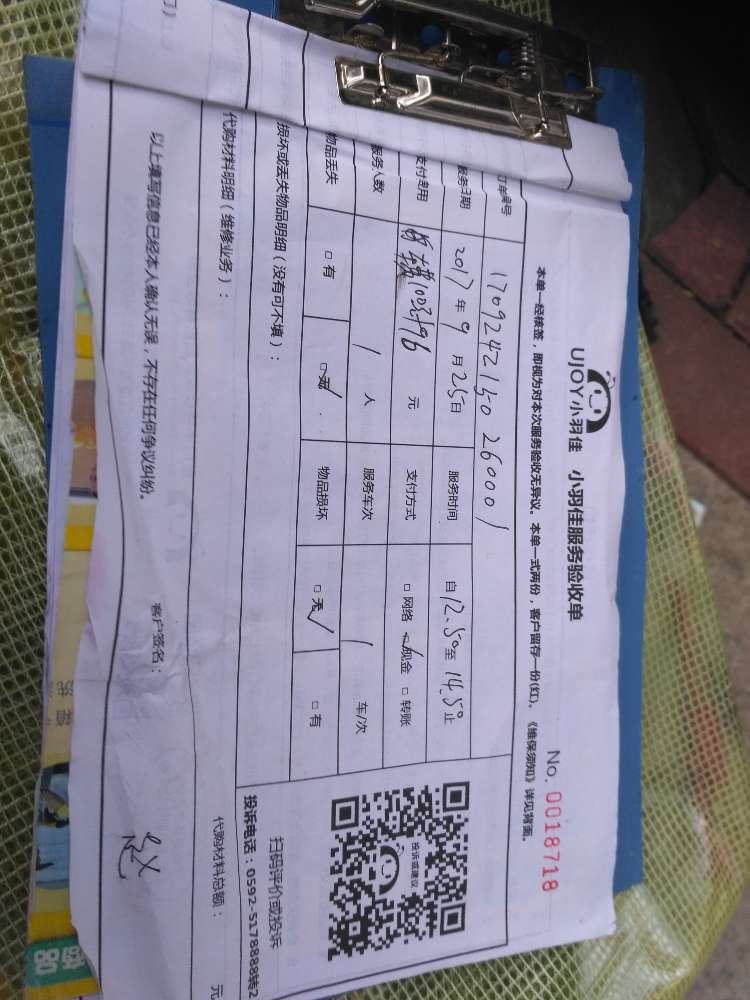 UJOY小羽佳 小羽佳服务验收单
No. 0018718
本单一经核签，即视为对本次服务验收无异议。本单一式两份，客户留存一份(红)。《维保须知》详见背面。
订单编号 17092421502600001
服务日期 2017年9月25日 服务时间 自12.50至14.50止
支付费用 元 支付方式 □网络 □现金 □转账
服务人数 / 人 服务车次 / 车/次
物品丢失 □有 □无 物品损坏 □无 □有
损坏或丢失物品明细（没有可不填）：
投诉或建议
扫码评价或投诉
投诉电话：0592-5178888转2
代购材料明细（维修业务）： 代购材料总额： 元
以上填写信息已经本人确认无误，不存在任何争议纠纷。 客户签名：